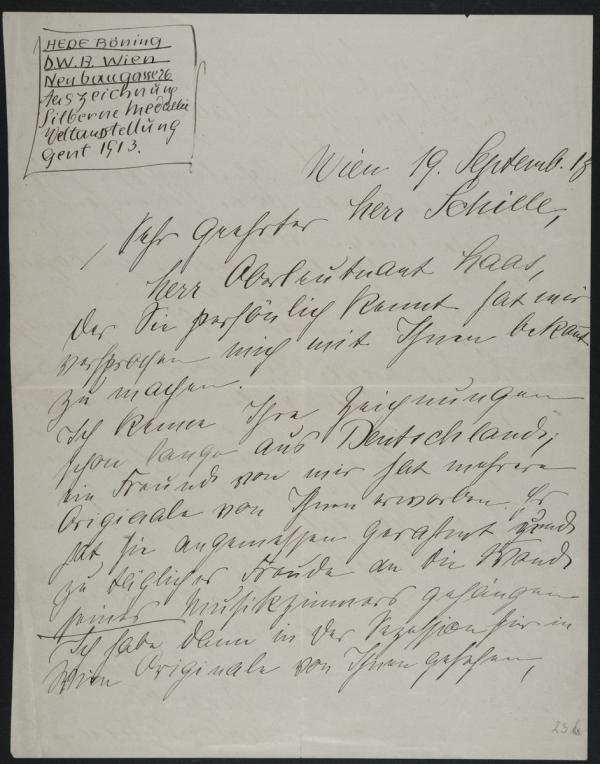 HEDE Böning
D.W.B. Wien
Neubaugasse 26
Auszeichnung
Silberne Medaille
Weltausstellung
Gent 1913.
Wien 19. Septemb. 18
Sehr geehrter Herr Schiele,
Herr Oberleutnant Haas,
der Sie persönlich kennt hat mir
versprochen mich mit Ihnen bekannt
zu machen.
Ich kenne Ihre Zeichnungen
schon lange aus Deutschland;
ein Freund von mir hat mehrere
Originale von Ihnen erworben. Er
hat sie angemessen gerahmt und
zu täglicher Freude an die Wand
seines Musikzimmers gehangen
Ich habe dann in der Sezession hier in
Wien Originale von Ihnen gesehen,
23